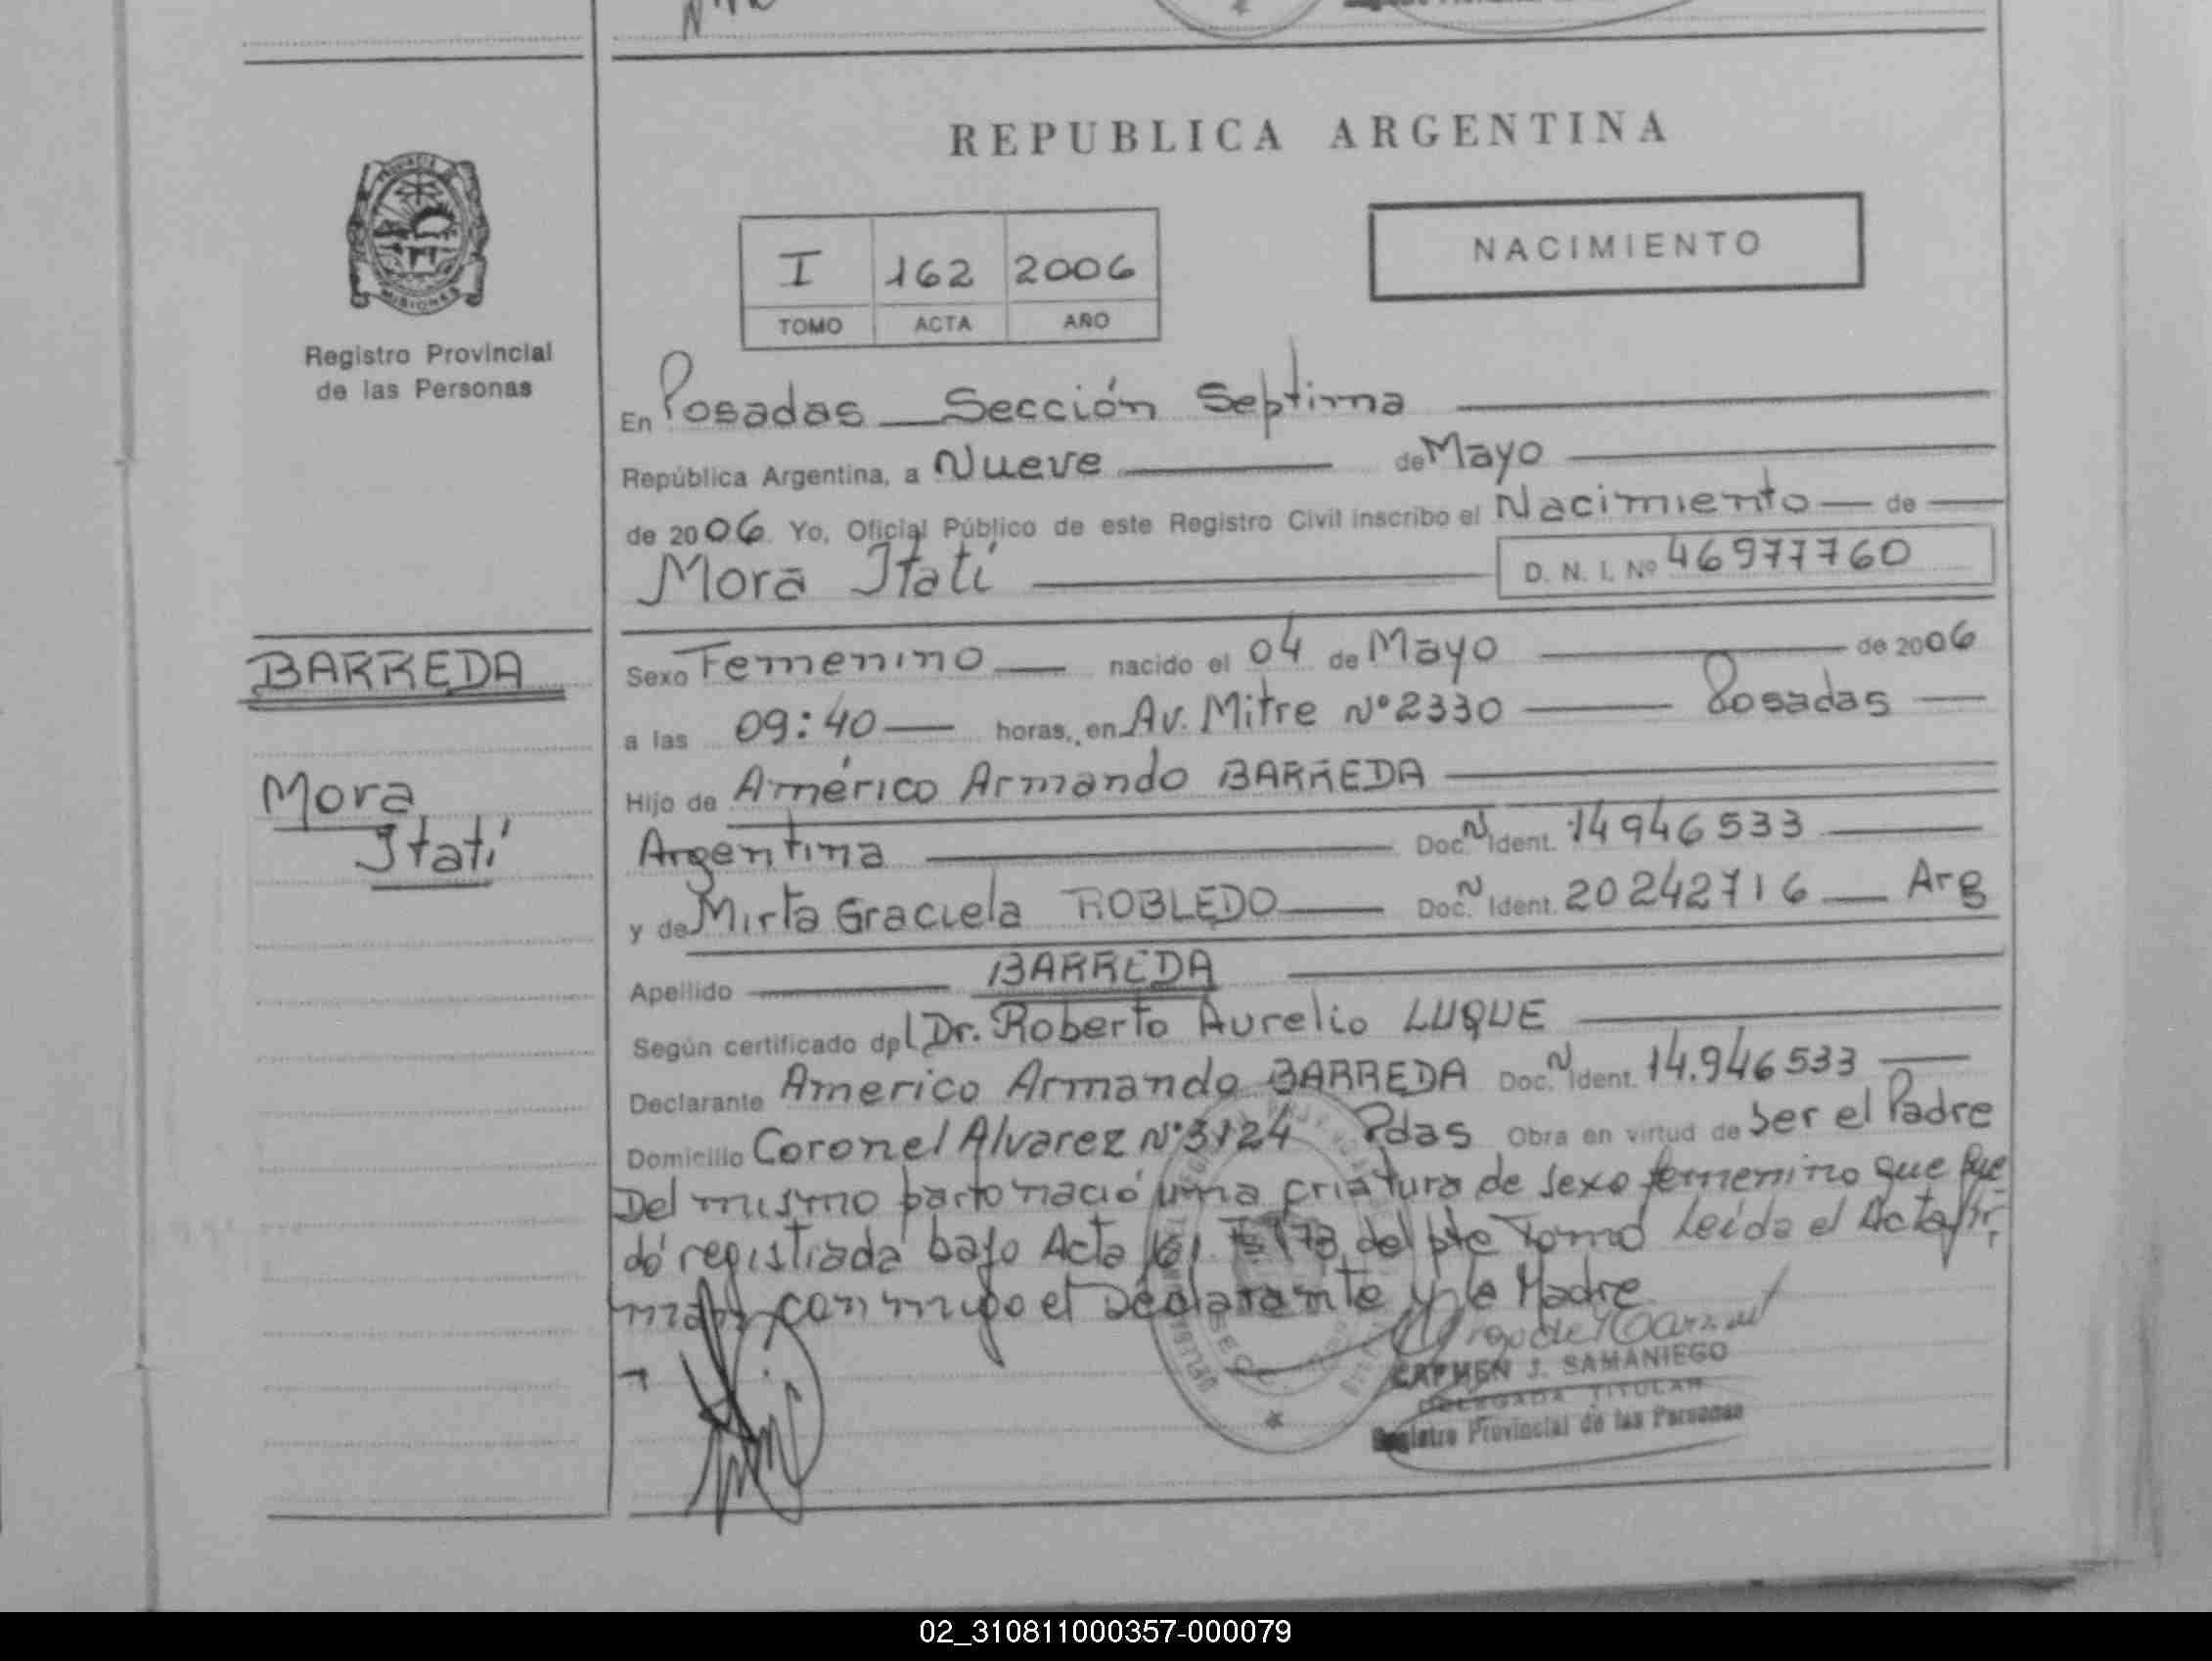 REPUBLICA ARGENTINA
PROVINCIA DE
MISIONES
Registro Provincial
de las Personas
I 162 2006
TOMO ACTA AÑO
NACIMIENTO
En Posadas Sección Septima
República Argentina, a Nueve de Mayo
de 2006 Yo, Oficial Público de este Registro Civil inscribo el Nacimiento de
Mora Itatí D. N. I. Nº 46977760
BARREDA
Mora
Itatí
Sexo Femenino nacido el 04 de Mayo de 2006
a las 09:40 horas, en Av. Mitre Nº 2330 Posadas
Hijo de Américo Armando BARREDA
Argentina Doc. N Ident. 14946533
y de Mirta Graciela ROBLEDO Doc. N Ident. 20242716 Arg
Apellido BARREDA
Según certificado del Dr. Roberto Aurelio LUQUE
Declarante Americo Armando BARREDA Doc. N Ident. 14.946533
Domicilio Coronel Alvarez Nº 3124 Pdas Obra en virtud de Ser el Padre
Del mismo parto nació una criatura de sexo femenino que que
dó registrada bajo Acta 161 del pte Tomo Leída el Acta fir
man conmigo el Declarante y la Madre
CARMEN J. SAMANIEGO
DELEGADA TITULAR
Registro Provincial de las Personas
02_310811000357-000079